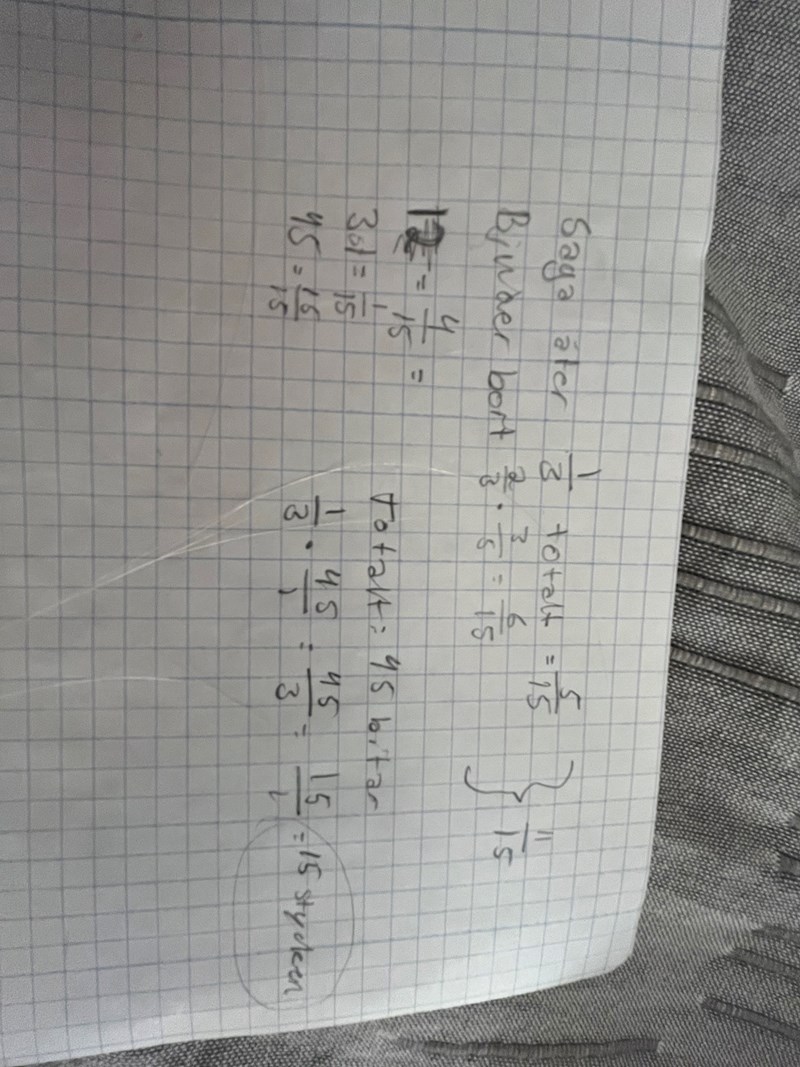 Saga äter 1/3 totalt = 5/15 } 11/15
Bjuder bort 2/3 · 3/5 = 6/15
12 = 4/15 =
3st = 1/15
45 = 15/15
Totalt: 45 bitar
1/3 · 45/1 = 45/3 = 15/1 = 15 stycken